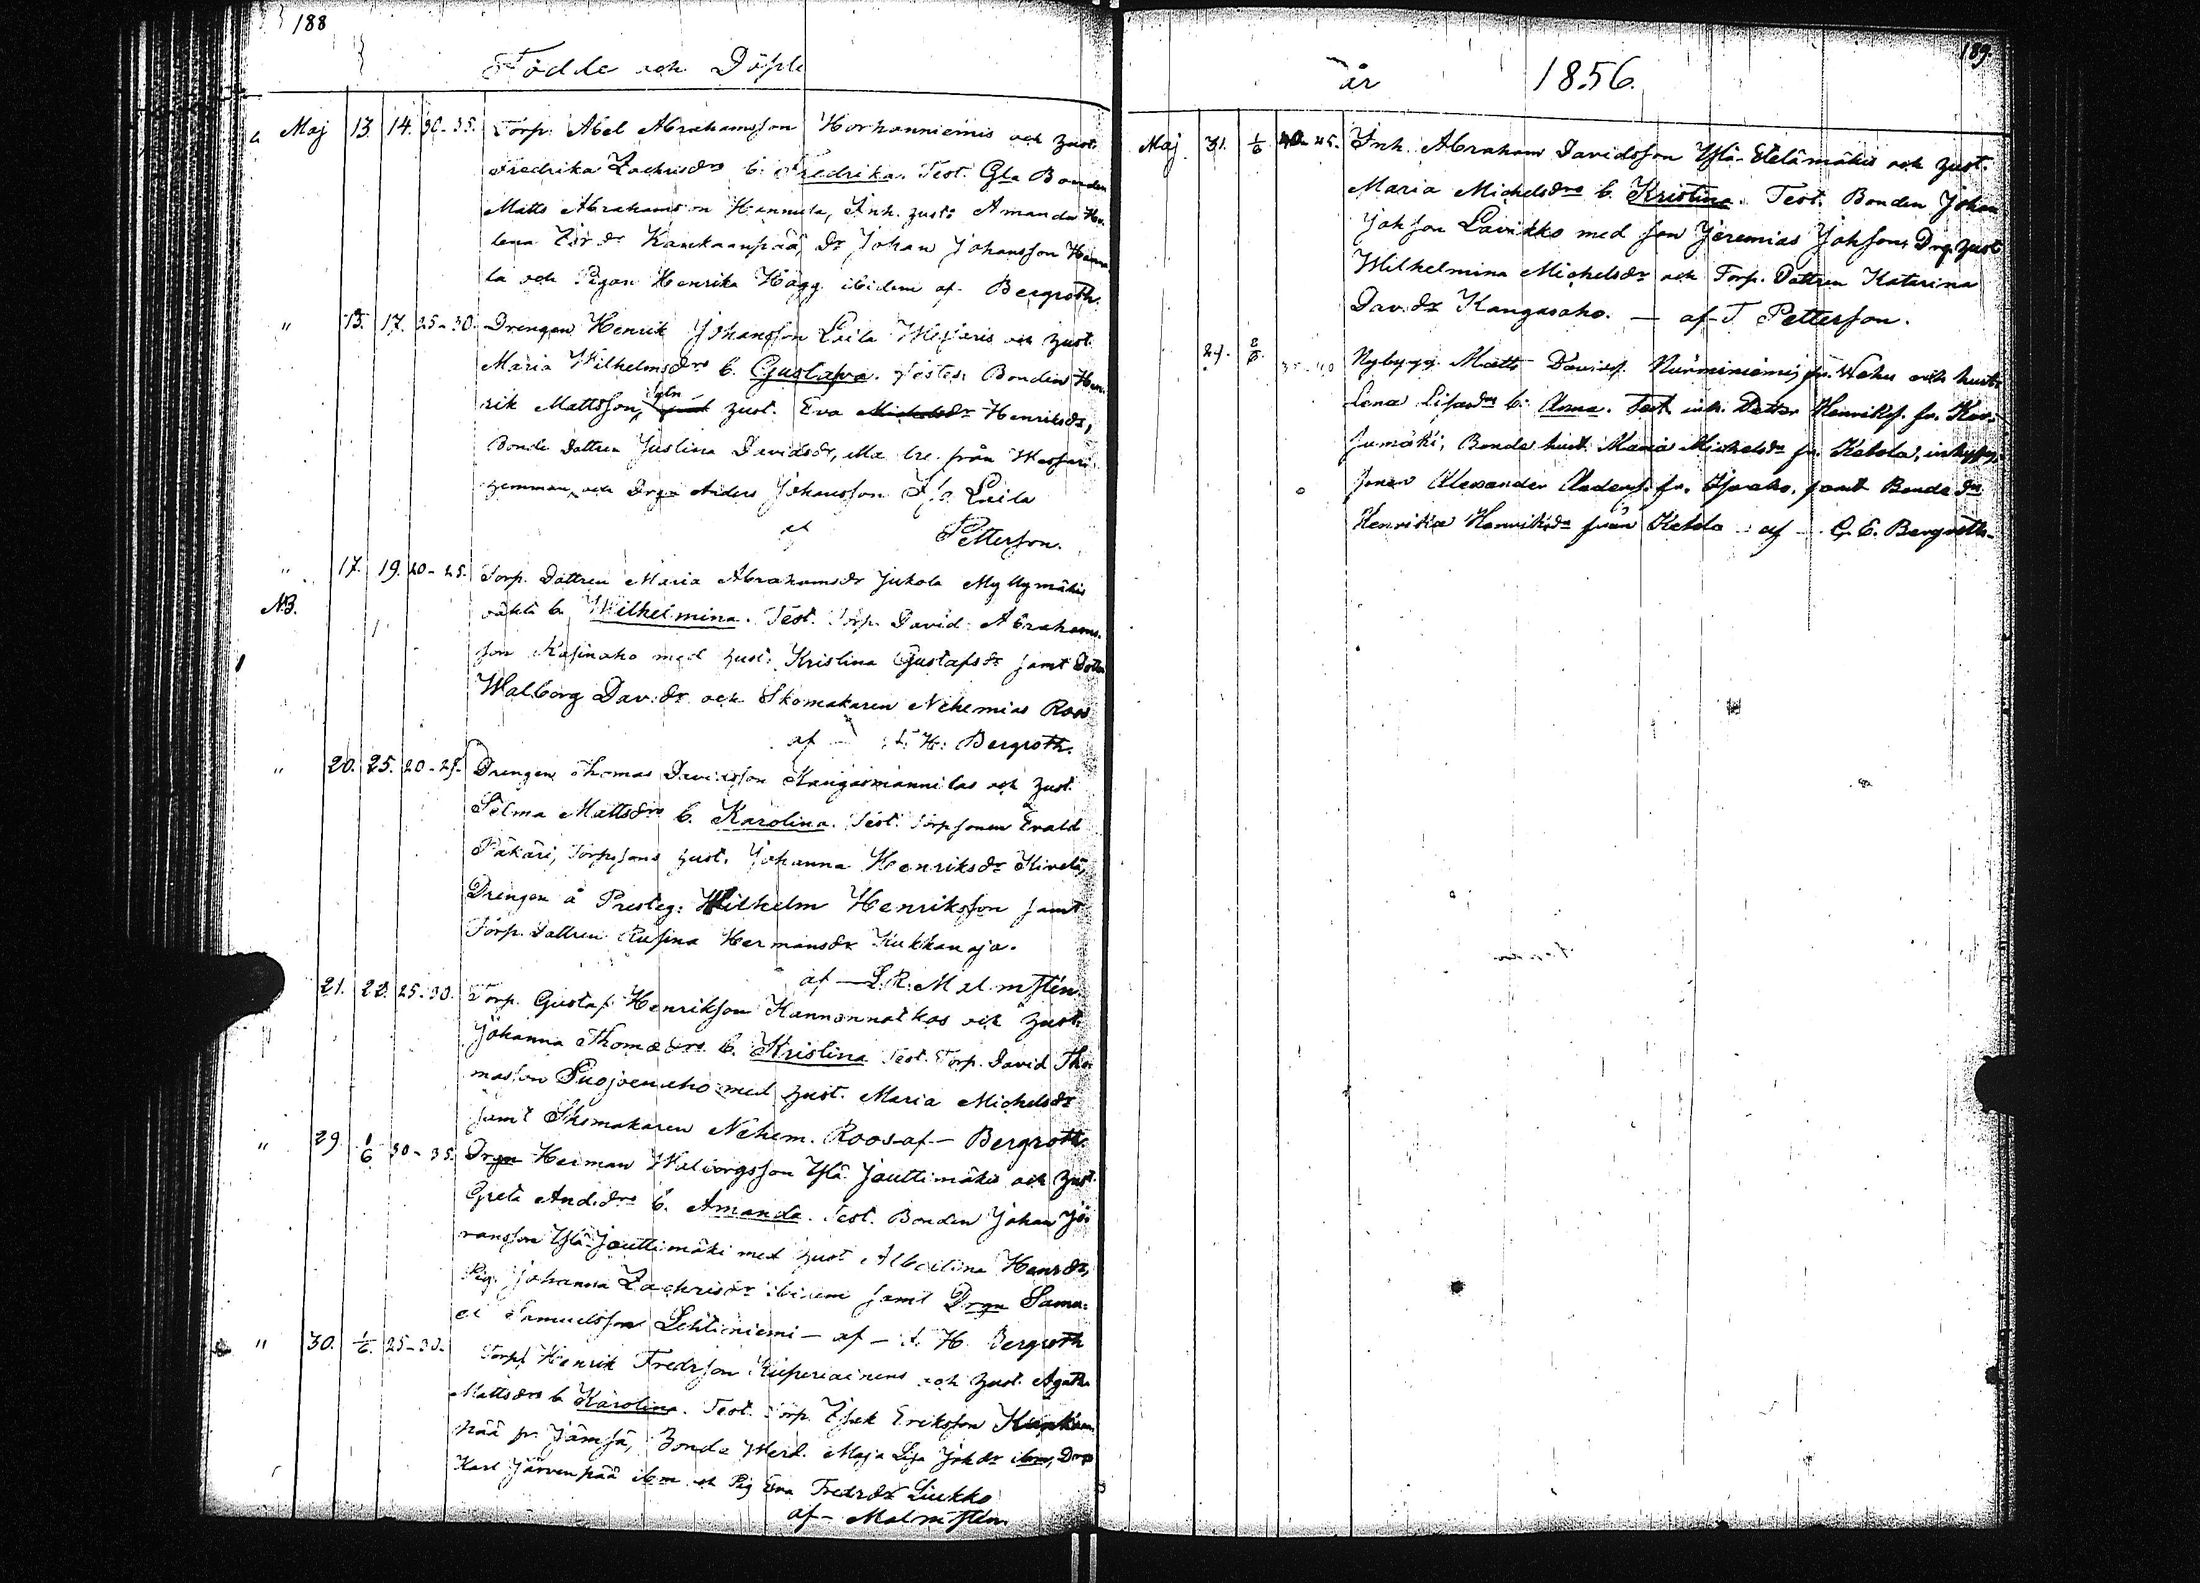 188
Födde och Döpte
Maj 13. 14. 30-35. Torp. Abel Abrahamsson Horhanniemis och hust.
Fredrika Zachrisdrs b. Fredrika. Test. Gla Bonden
Matts Abrahamsson Hannula, Inh. hust: Amanda He-
lena dr Kankaanpää, Dr Johan Johansson Hannu
la och Pigan Henrika Hägg ibidem af Bergroth.
" 15. 17. 25-30. Drengen Henrik Johansson Laila och hust.
Maria Wilhelmsdrs b. Gustafva. Testes: Bonden Hen
rik Mattsson, hust. Eva Michelsdr Henriksdr,
Bonde Dottren Justina Davidsdr, från
hemman och Drgn Anders Johansson Laila
af Petterson.
" 17. 19. 20-25. Torp. Dottren Maria Abrahamsdr Jukola Myllymäkis
NB.
oäkta b. Wilhelmina. Test. Torp. David Abrahams-
son Kasinaho med hust: Kristina Gustafsdr samt Dottr
Walborg Dav.dr och Skomakaren Nehemias Roos
af H: Bergroth.
" 20. 25. 20-25. Drengen Thomas Davidsson Kangasmannilas och hust.
Selma Mattsdrs b. Karolina. Test. Torpsonen Evald
Päkäri, Torpsons hust. Johanna Henriksdr Kivelä,
Drengen å Presteg: Wilhelm Henriksson samt
Torp. Dattren Rusina Hermansdr Kukkanoja.
af — L. R. Malmstén.
21. 22. 25-30. Torp. Gustaf Henriksson Kannonnatkos och hust:
Johanna Thomædrs b. Kristina Test. Torp. David Tho-
masson Suojoenaho med hust. Maria Michelsdr
samt Skomakaren Nehem. Roos af — Bergroth
" 29 1/6 30-35. Drgn Herman Walborgsson Ylä Jouttimäkis och hust.
Greta And.drs b. Amanda. Test. Bonden Johan Jö-
ransson Ylä-Jouttimäki med hust Albertina Henrdr,
Pig. Johanna Zachrisdr ibidem samt Drgn Samu-
el Samuelsson Lehtiniemi — af — H. Bergroth
" 30. 1/6. 25-30. Torp. Henrik Fredrsson och hust. Agatha
Mattsdrs b. Karolina. Test. Torp. Isak Eriksson
pää fr. Jämsä, Bonde Werd. Maja Lisa Johdr ibm, Drg
Karl Järvenpää ibm och Pig Eva Fredrdr Liukko
af — Malmstén.
189.
år 1856.
Maj 31. 1/6 40-45. Inh. Abraham Davidsson Ylä-Etelämäkis och hust.
Maria Michelsdrs b. Kristina. Test. Bonden Johan
Johsson Lavikko med son Jeremias Johsson, Drg. hust
Wilhelmina Michelsdr och Torp. Dottren Katarina
Dav.dr Kangasaho. — af T Petterson.
29. 2/6. 35-40 Nybygg. Matts Davids. Nurminiemi, fr. Wehu och hust.
Lena Lisa b: Anna. Test inh. Henriks. fr. Kor-
sumäki, Bonde hust. Maria Michelsdr fr. Ketola, inhyss
sonen Alexander Anders. fr. samt Bonde dr
Henrika Henriksdr från Ketola af — G. E. Bergroth.